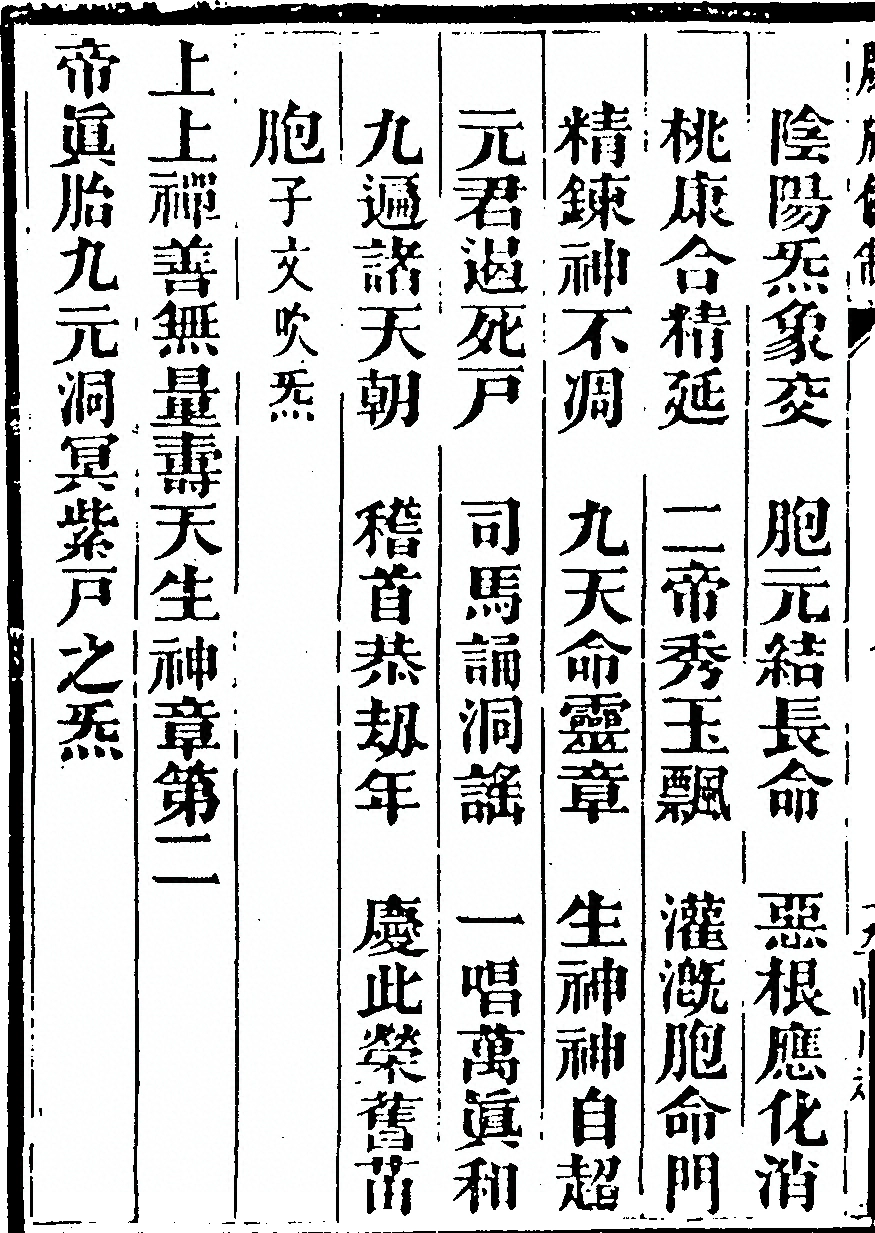 陰陽炁象交　胞元結長命　惡根應化消
桃康合精延　二帝秀玉飄　灌溉胞命門
精鍊神不凋　九天命靈章　生神神自超
元君遏死戸　司馬誦洞謠　一唱萬眞和
九遍諸天朝　稽首恭劫年　慶此榮舊苗
胞子文吹炁
上上禪善無量壽天生神章第二
帝眞胎九元洞冥紫戸之炁